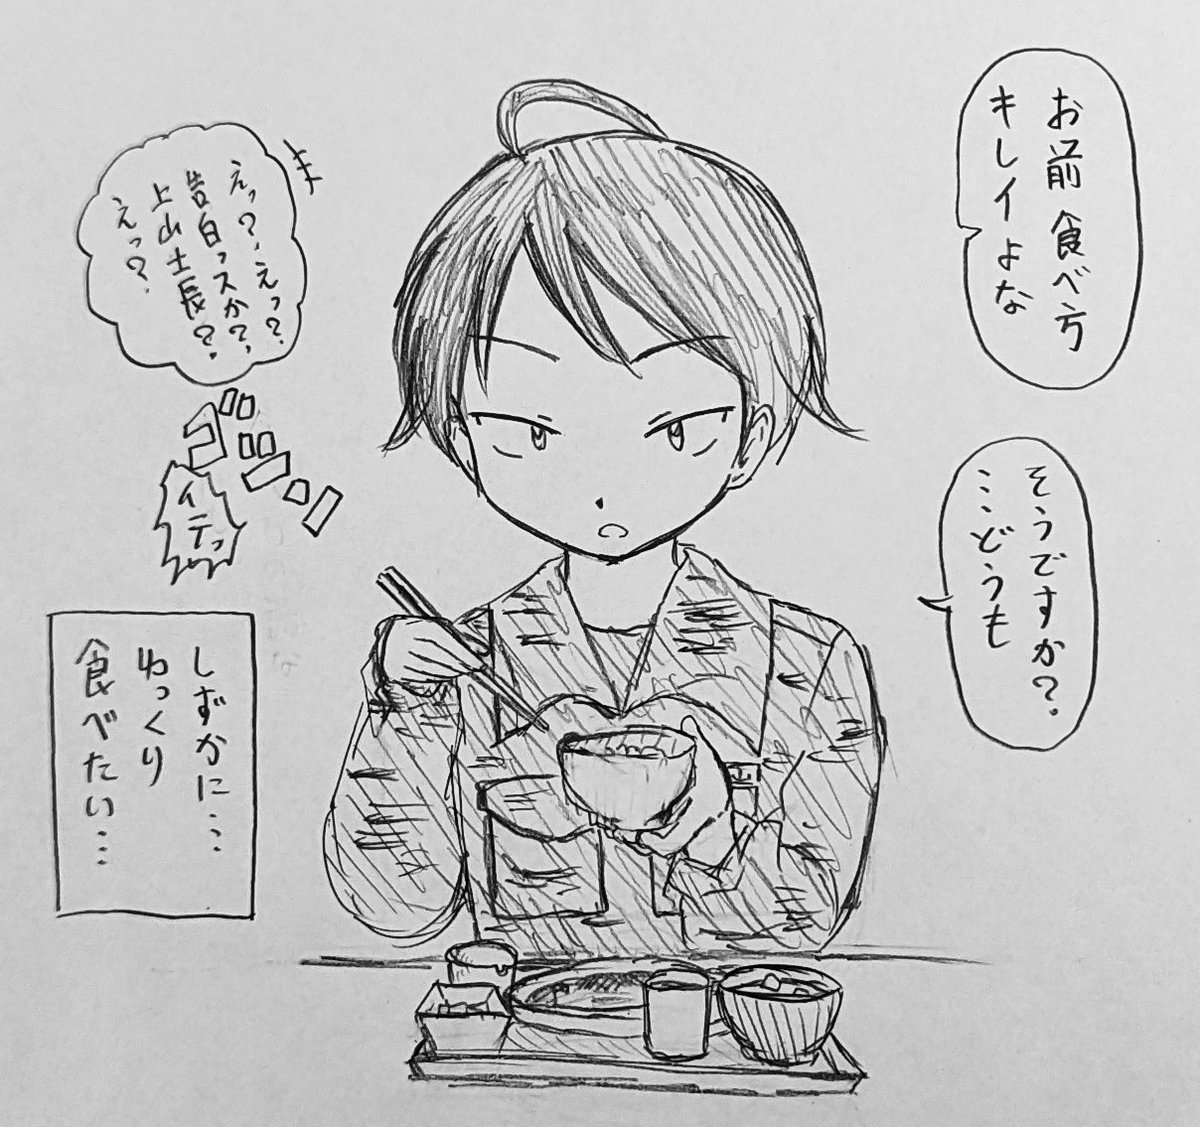 お前 食べ方
キレイよな
そうですか?
…どうも
えっ?、えっ?
告白っスか?、
上山士長?、
えっ?
ゴンッ
イテっ
しずかに…
ゆっくり
食べたい…